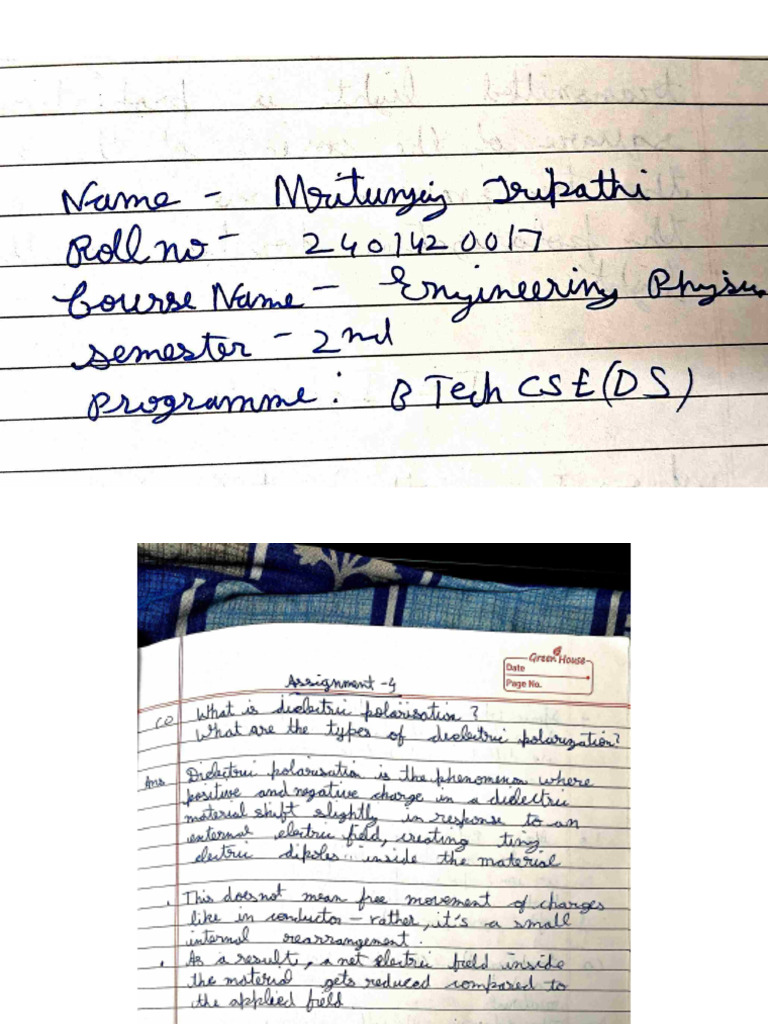 Name - Mritunjay Tripathi
Roll no - 2401420017
Course Name - Engineering Physics
Semester - 2nd
Programme: B Tech CSE (DS)
Green House
Date
Page No.
Assignment - 4
What is dielectric polarisation?
What are the types of dielectric polarization?
Ans Dielectric polarisation is the phenomenon where
positive and negative charge in a dielectric
material shift slightly in response to an
external electric field, creating tiny
electric dipoles inside the material
. This does not mean free movement of charges
like in conductor - rather, it's a small
internal rearrangement.
. As a result, a net electric field inside
the material gets reduced compared to
the applied field.